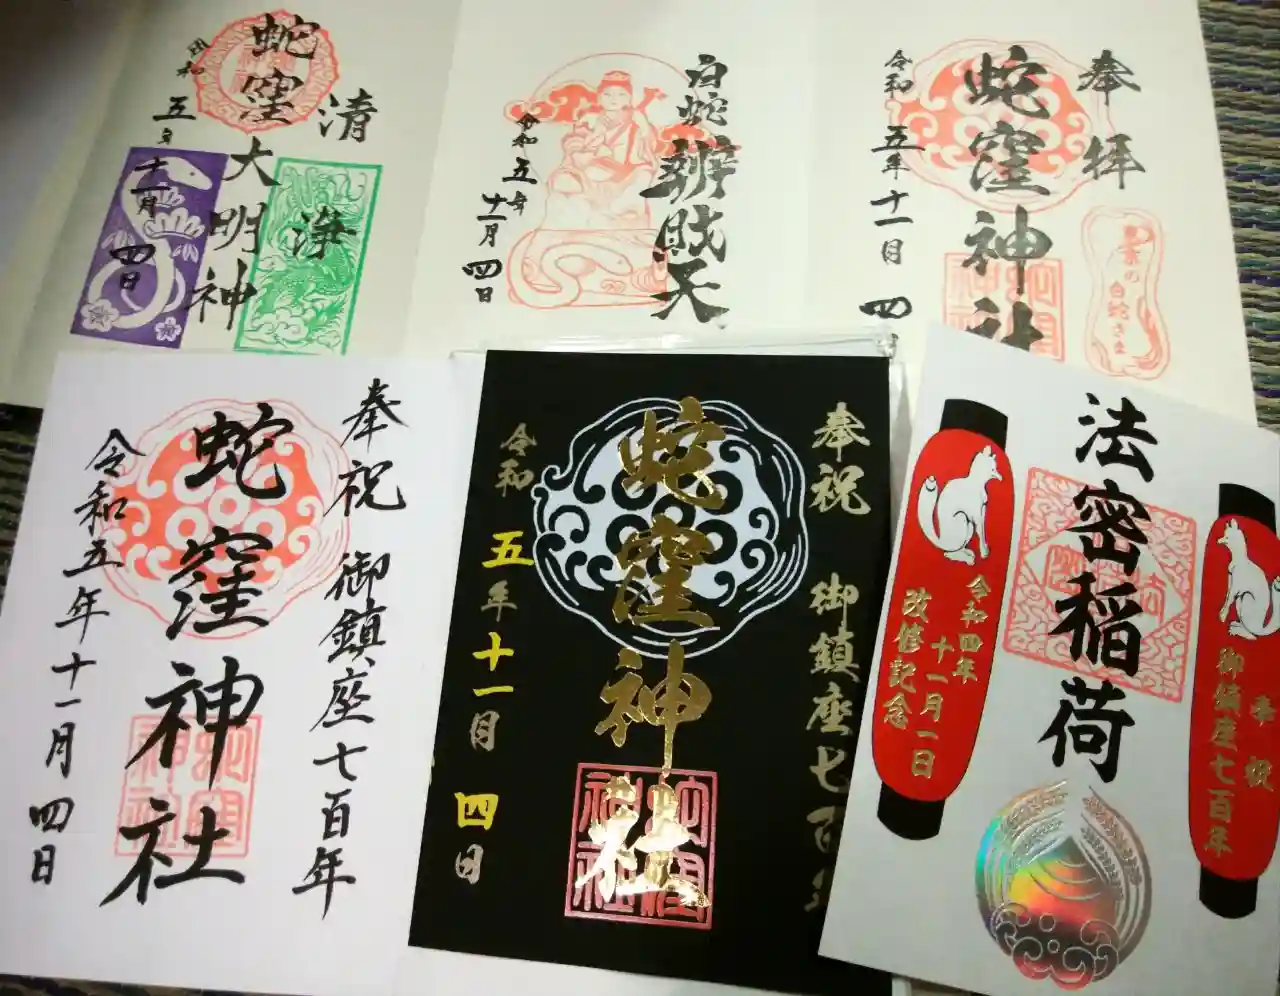 奉拝
蛇窪神社
令和五年十一月四
夢の白蛇さま
白蛇辨財天
令和五年十一月四日
清浄
蛇窪大明神
令和五年十一月四日
法密稲荷
令和四年十一月一日
改修記念
奉祝
御鎮座七百年
奉祝 御鎮座七百年
蛇窪神社
令和五年十一月四日
蛇窪神社
奉祝 御鎮座七百年
蛇窪神社
令和五年十一月四日
蛇窪神社